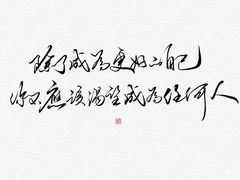 除了成为更好的自己
你不應該渴望成為任何人